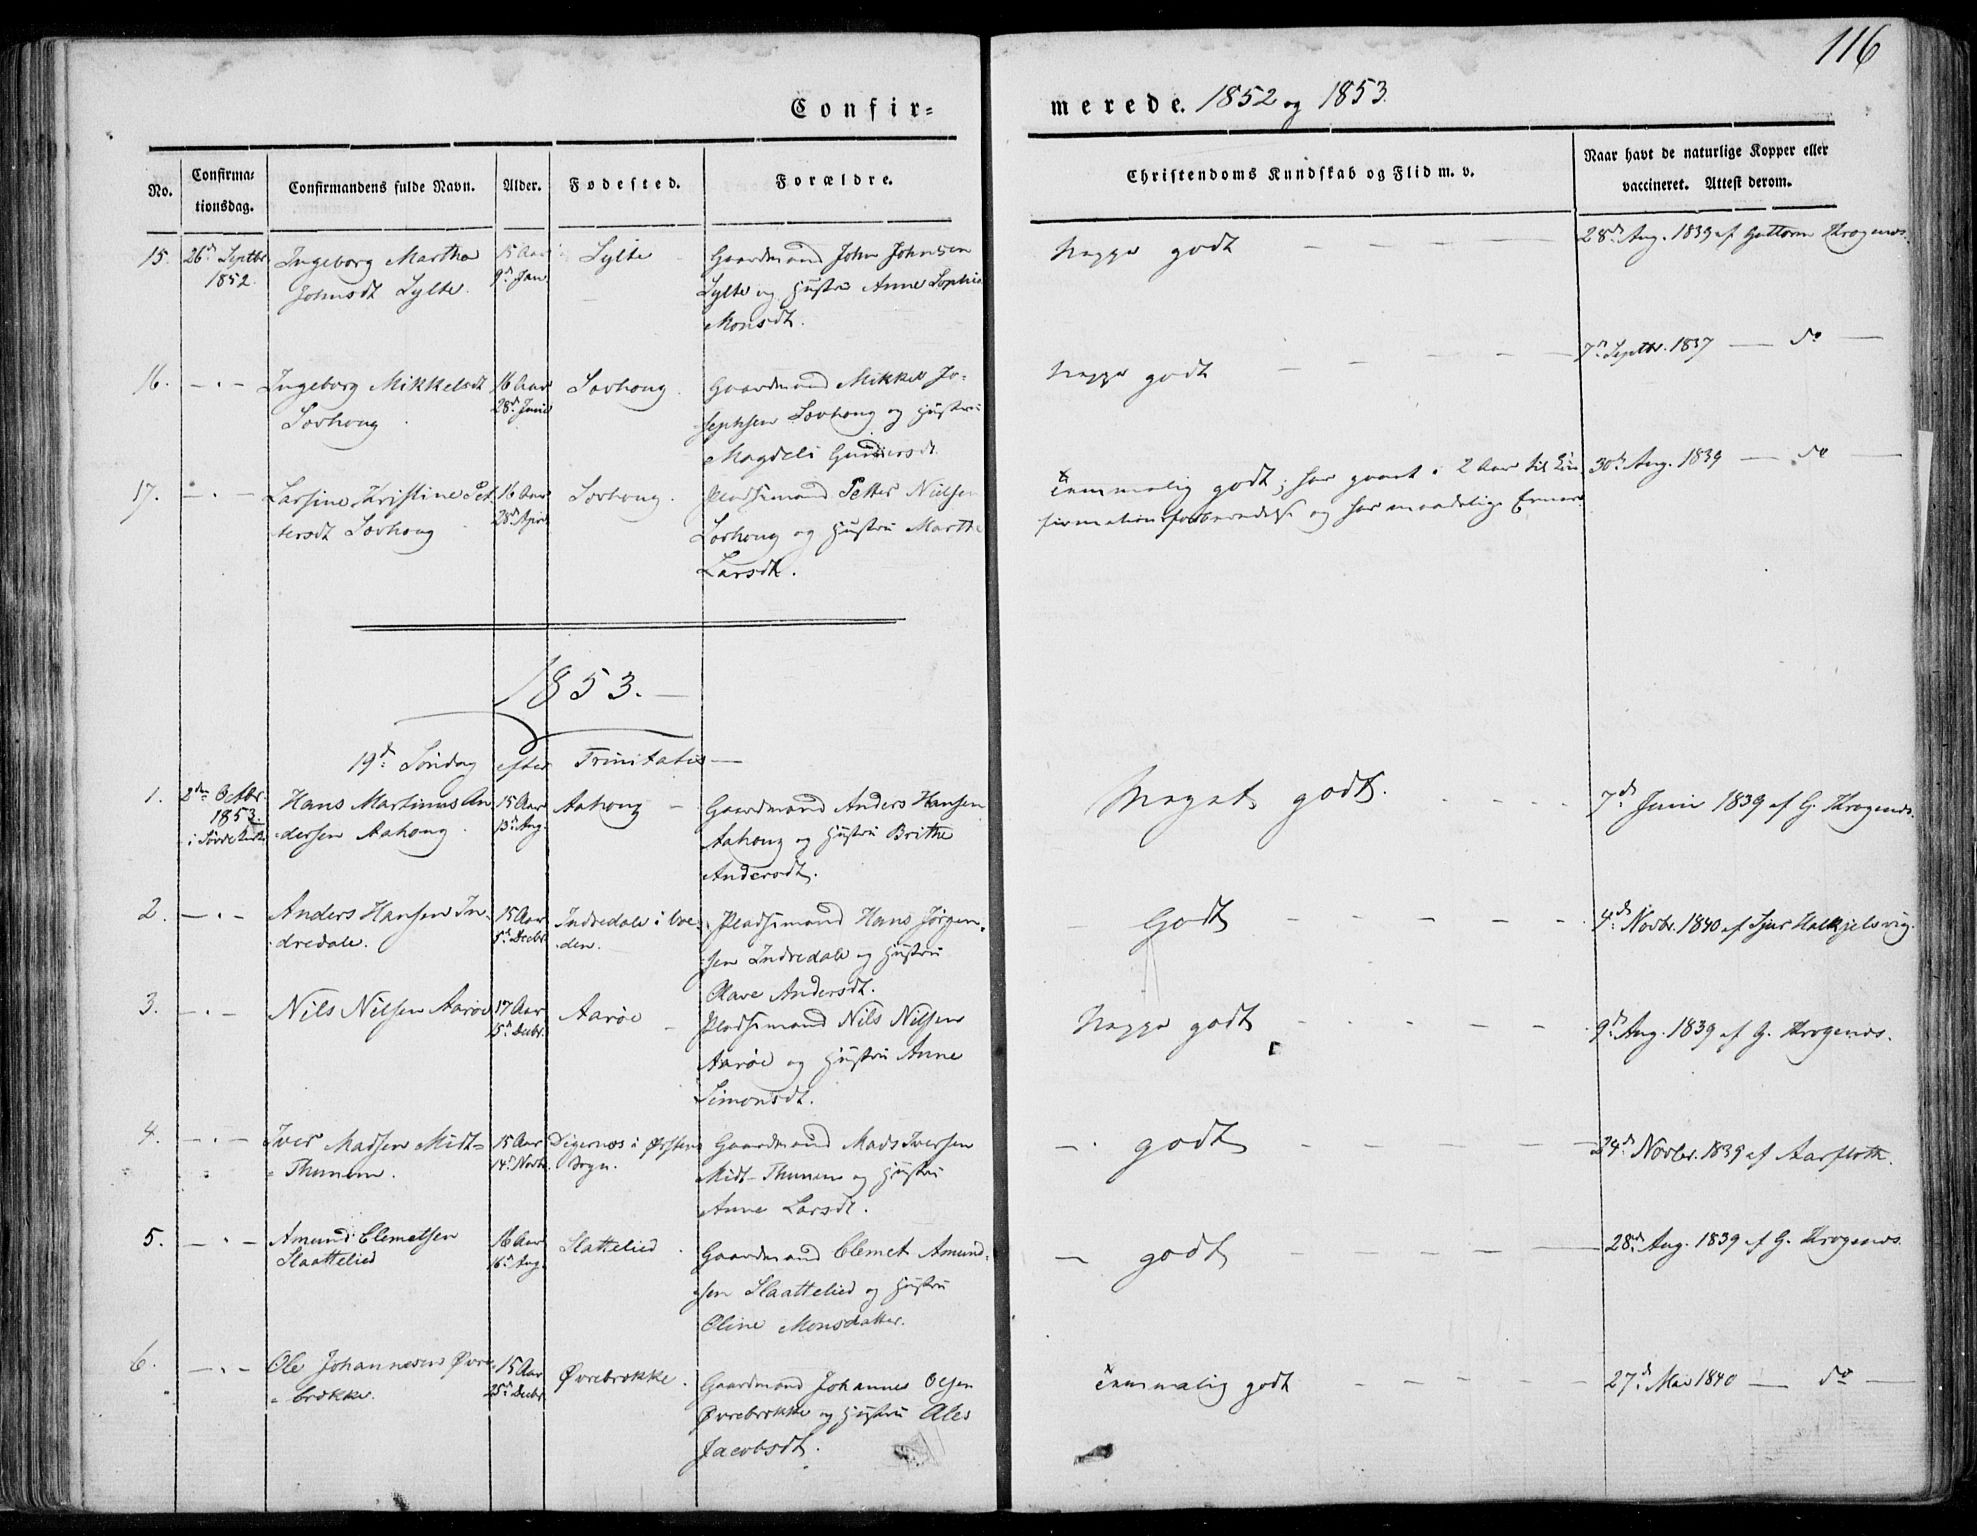 116
Confir=
merede. 1852 og 1853.
No.
Confirma=
tionsdag.
Confirmandens fulde Navn.
Alder.
Fødested.
Forældre.
Christendoms Kundskab og Flid m. v.
Naar havt de naturlige Kopper eller
vaccineret. Attest derom.
15.
26de Septbr
1852.
Ingeborg Martha
Johnsdt Sylte.
15 Aar
9de Jan
Sylte
Gaardmand John Johnsen
Sylte og Hustru Anne Sophie
Monsdt.
Noget godt
28de Aug. 1839 af Guttorm Krogenæs.
16.
Ingeborg Mikkelsdt
Lovhoug
16 Aar
28de Junii
Lovhoug
Gaardmand Mikkel Jo-
sephsen Lovhoug og Hustru
Magdeli Gundersdt.
Noget godt
7de Septbr. 1837 — do —
17.
Larsine Kristine Pet
tersdt Lovhoug
16 Aar
28de April
Lovhoug.
Pladsmand Petter Nielsen
Lovhoug og Hustru Marthe
Larsdt.
temmelig godt; har gaaet i 2 Aar til Con
firmationsforberedelse og har maadelige Evner.
30te Aug. 1839 — do —
1853.
19de Søndag efter Trinitatis
1.
2den Octbr.
1853.
i Søvde Kirke
Hans Martinus An
dersen Aahoug.
15 Aar
13de Aug.
Aahoug
Gaardmand Anders Hansen
Aahoug og Hustru Brithe
Andersdt.
Meget godt.
7de Junii 1839 af G. Krogenæs.
2.
Anders Hansen In
dredale.
15 Aar
5te Decbr
Indredale i
den.
Pladsmand Hans Jørgen-
sen Indredale og Hustru
Olave Andersdt.
Godt
4de Novbr. 1840 af Sjur Halkjelsvig.
3.
Nils Nilsen Aarøe
17 Aar
15de Decbr.
Aarøe
Pladsmand Nils Nilsen
Aarøe og Hustru Anne
Simonsdt.
Noget godt
9de Aug. 1839 af G. Krogenæs.
4.
Iver Madsen Midt=
=Thunem.
15 Aar
14de Novbr.
Digernæs i Ørsten
Sogn.
Gaardmand Mads Iversen
Midt-Thunem og Hustru
Anne Larsdt.
godt
24de Novbr. 1839 af Aarfloth.
5.
Amund Clemetsen
Slaattelied
16 Aar
16de Aug.
Slattelied
Gaardmand Clemet Amund-
sen Slaattelied og Hustru
Oline Monsdatter.
godt
28de Aug. 1839 af G. Krogenæs.
6.
Ole Johannesen Øvre
=brekke.
15 Aar
25de Decbr
Øvrebrekke.
Gaardmand Johannes Olsen
Øvrebrekke og Hustru Ales
Jacobsdt.
temmelig godt
27de Mai 1840 — do —